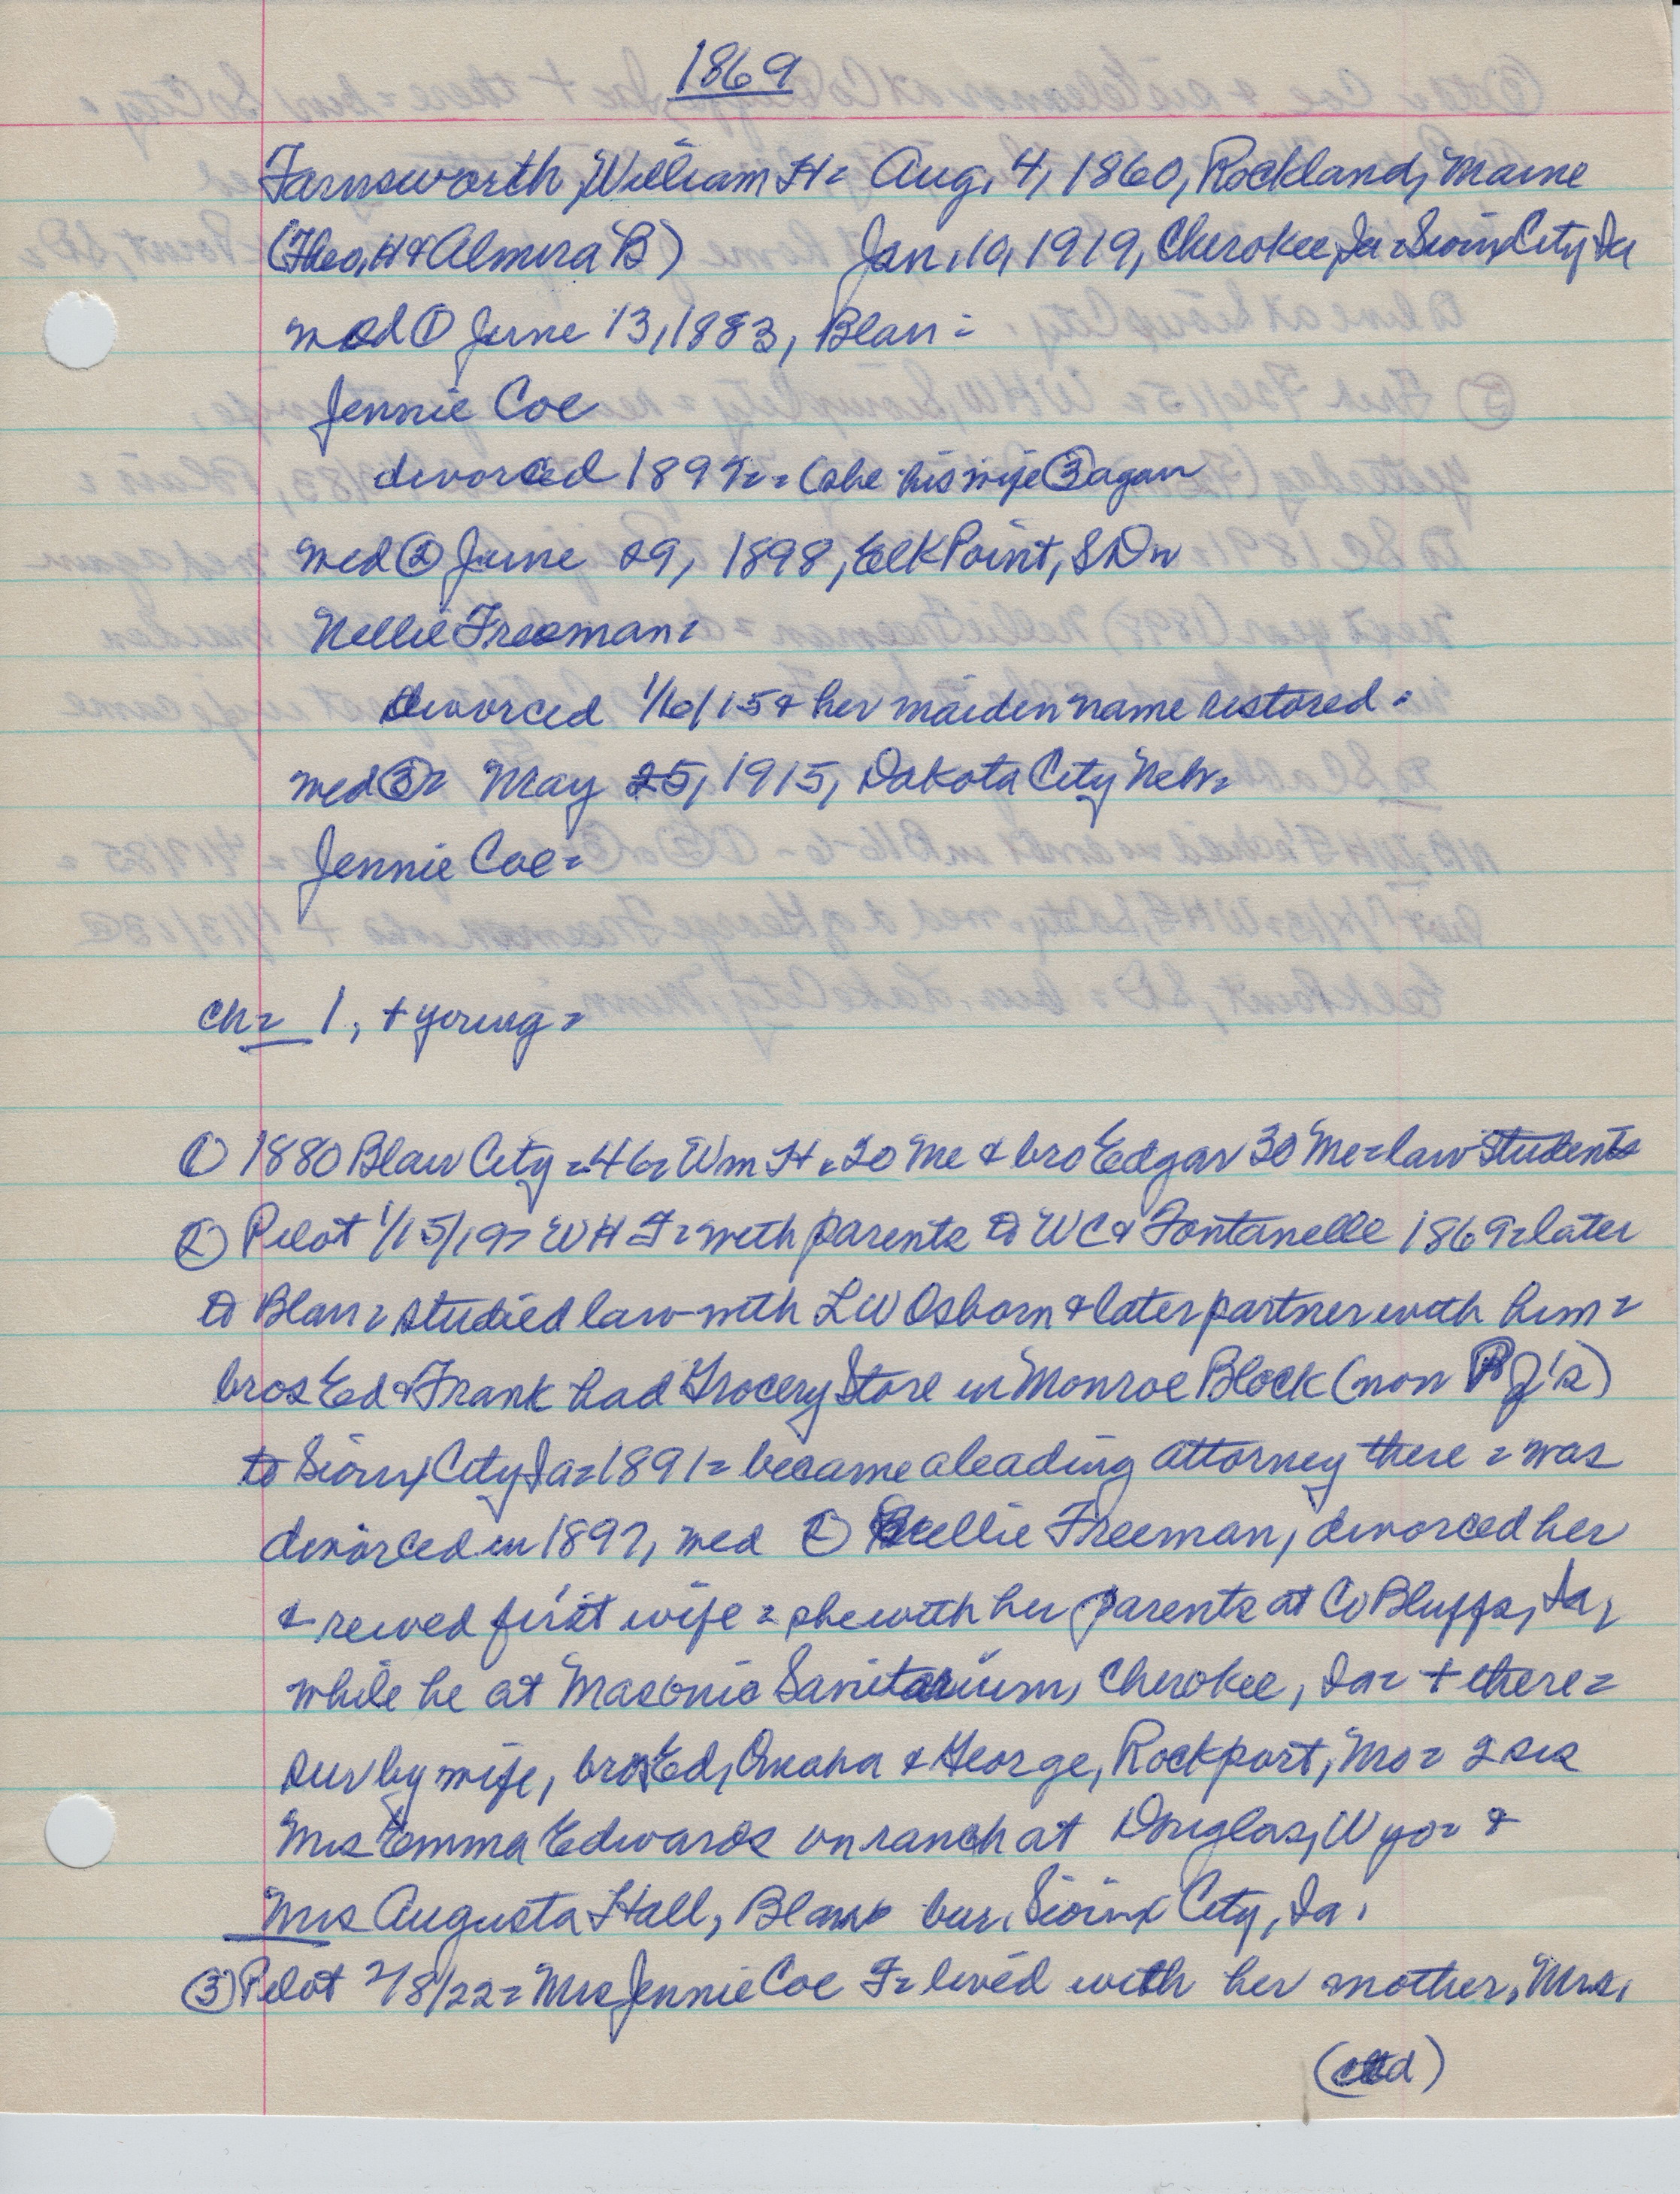 1869
Farnsworth, William H = Aug. 4, 1860, Rockland, Maine
(Theo. H & Almira B) Jan. 10, 1919, Cherokee, Ia = Sioux City, Ia
med ① June 13, 1883, Blair =
Jennie Coe
divorced 1897 = (she his wife ③ again
med ② June 29, 1898, Elk Point, SD =
Nellie Freeman =
divorced 1/6/15 & her maiden name restored =
med ③ = May 25, 1915, Dakota City Nebr =
Jennie Coe =
ch = 1, + young =
① 1880 Blair City = 46 = Wm H = 20 Me & bro Edgar 30 Me = law students
② Pilot 1/15/19 = WHF = with parents to WC & Fontanelle 1869 = later
to Blair = studied law with LW Osborn & later partner with him =
bros Ed & Frank had Grocery Store in Monroe Block (now J's)
to Sioux City Ia = 1891 = became a leading attorney there = was
divorced in 1897, med ② Nellie Freeman, divorced her
& rewed first wife = she with her parents at Co Bluffs, Ia,
while he at Masonic Sanitarium, Cherokee, Ia = + there =
sur by wife, bros Ed, Omaha & George, Rockport, Mo = 2 sis
Mrs Emma Edwards on ranch at Douglas, Wyo = &
Mrs Augusta Hall, Blair = bur. Sioux City, Ia.
③ Pilot 2/8/22 = Mrs Jennie Coe F = lived with her mother, Mrs.
(ctd)